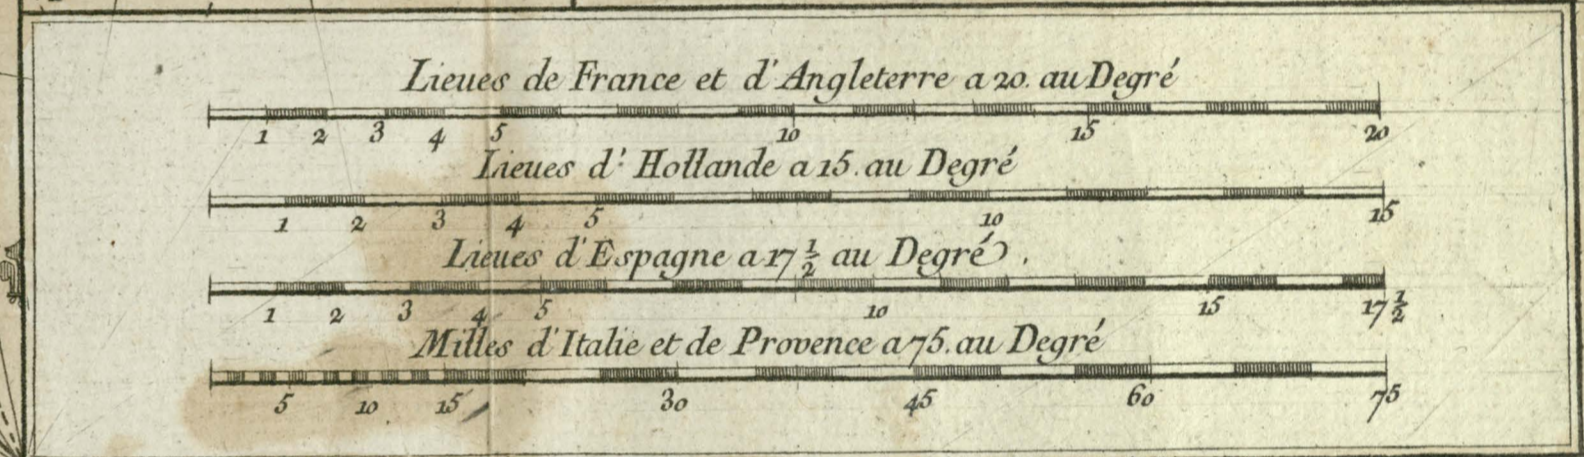 Lieues de France et d'Angleterre a 20. au Degré
1 2 3 4 5 10 15 20
Lieues d'Hollande a 15. au Degré
1 2 3 4 5 10 15
Lieues d'Espagne a 17 1/2 au Degré.
1 2 3 4 5 10 15 17 1/2
Milles d'Italie et de Provence a 75. au Degré
5 10 15 30 45 60 75